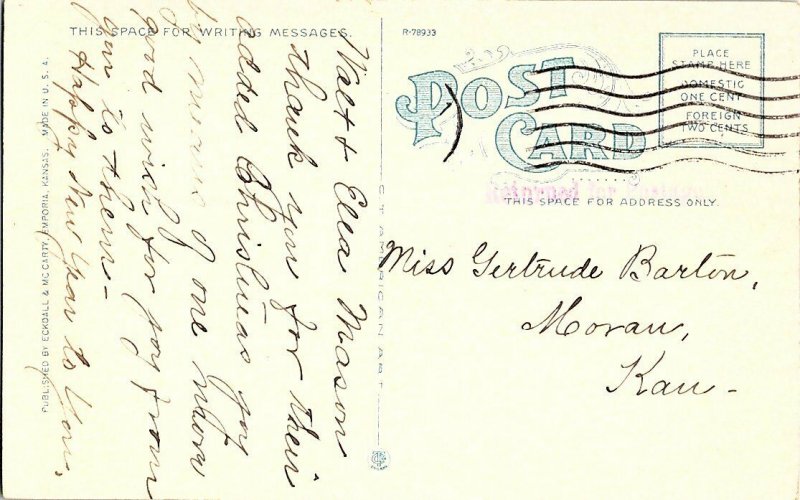 THIS SPACE FOR WRITING MESSAGES.
R-78933
POST
CARD
PLACE
STAMP HERE
DOMESTIC
ONE CENT
FOREIGN
TWO CENTS
Returned for Postage
THIS SPACE FOR ADDRESS ONLY.
Miss Gertrude Barton,
Moran,
Kan-
Walt & Ella Mason
thank you for their
added Christmas joy
by means of one more
good wish for joy from
you to them-
Happy New Year to You.
PUBLISHED BY ECKDALL & MC CARTY, EMPORIA, KANSAS. MADE IN U. S. A.
C. T. AMERICAN ART